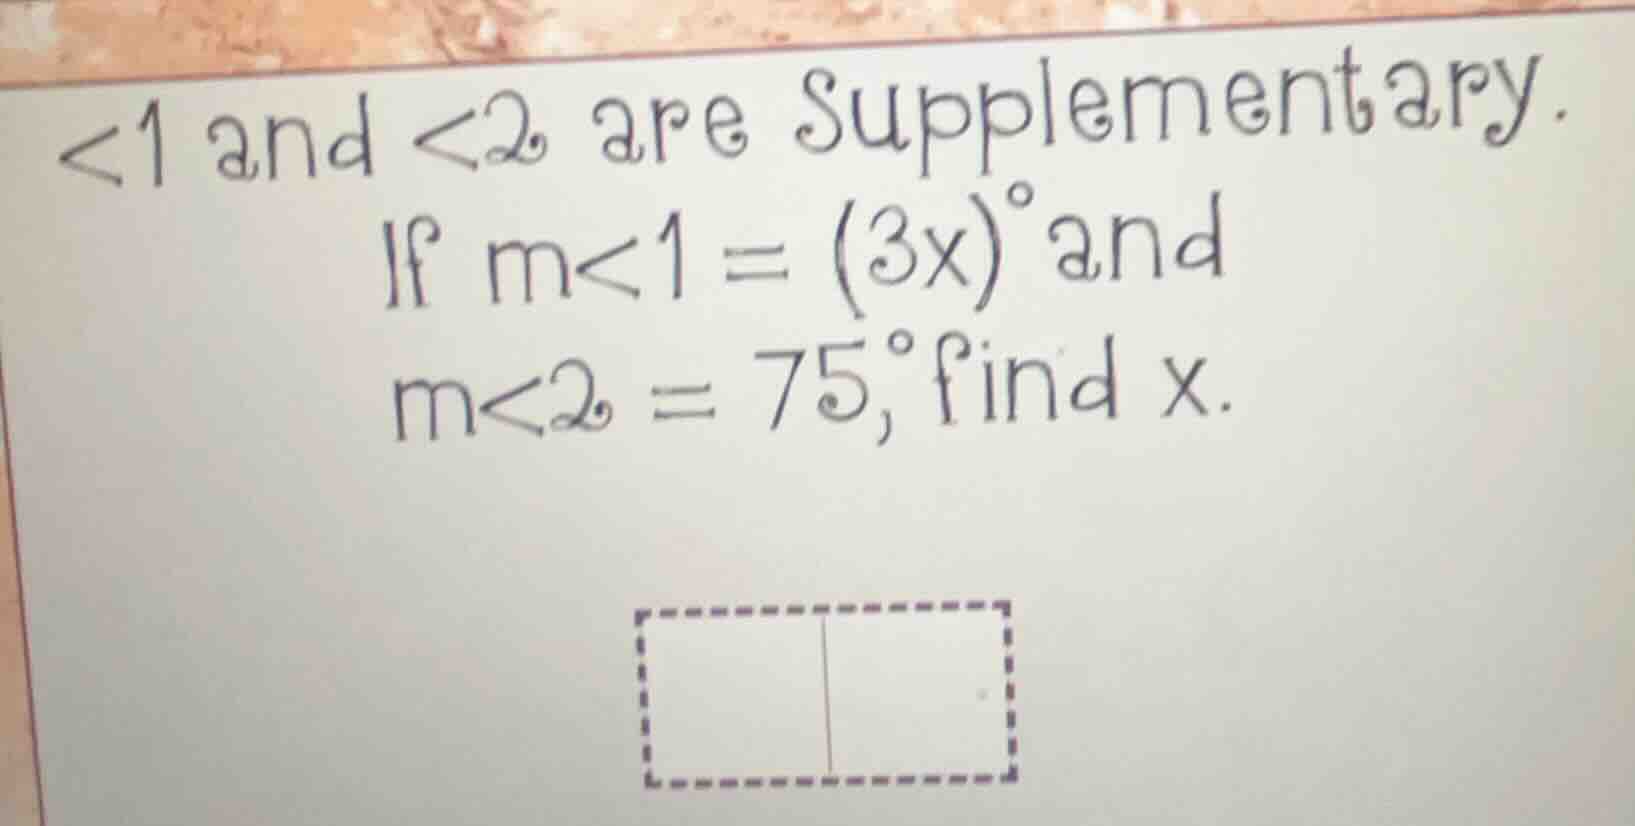 <1 and <2 are Supplementary.
If m<1 = (3x)° and
m<2 = 75°, find x.